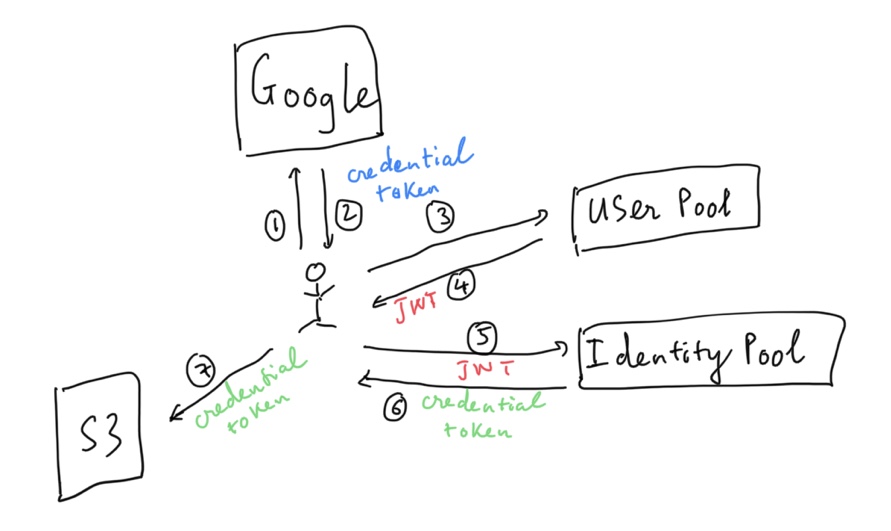 Google
credential
token
1
2
3
User Pool
4
JWT
5
JWT
Identity Pool
6
credential
token
7
credential
token
S3